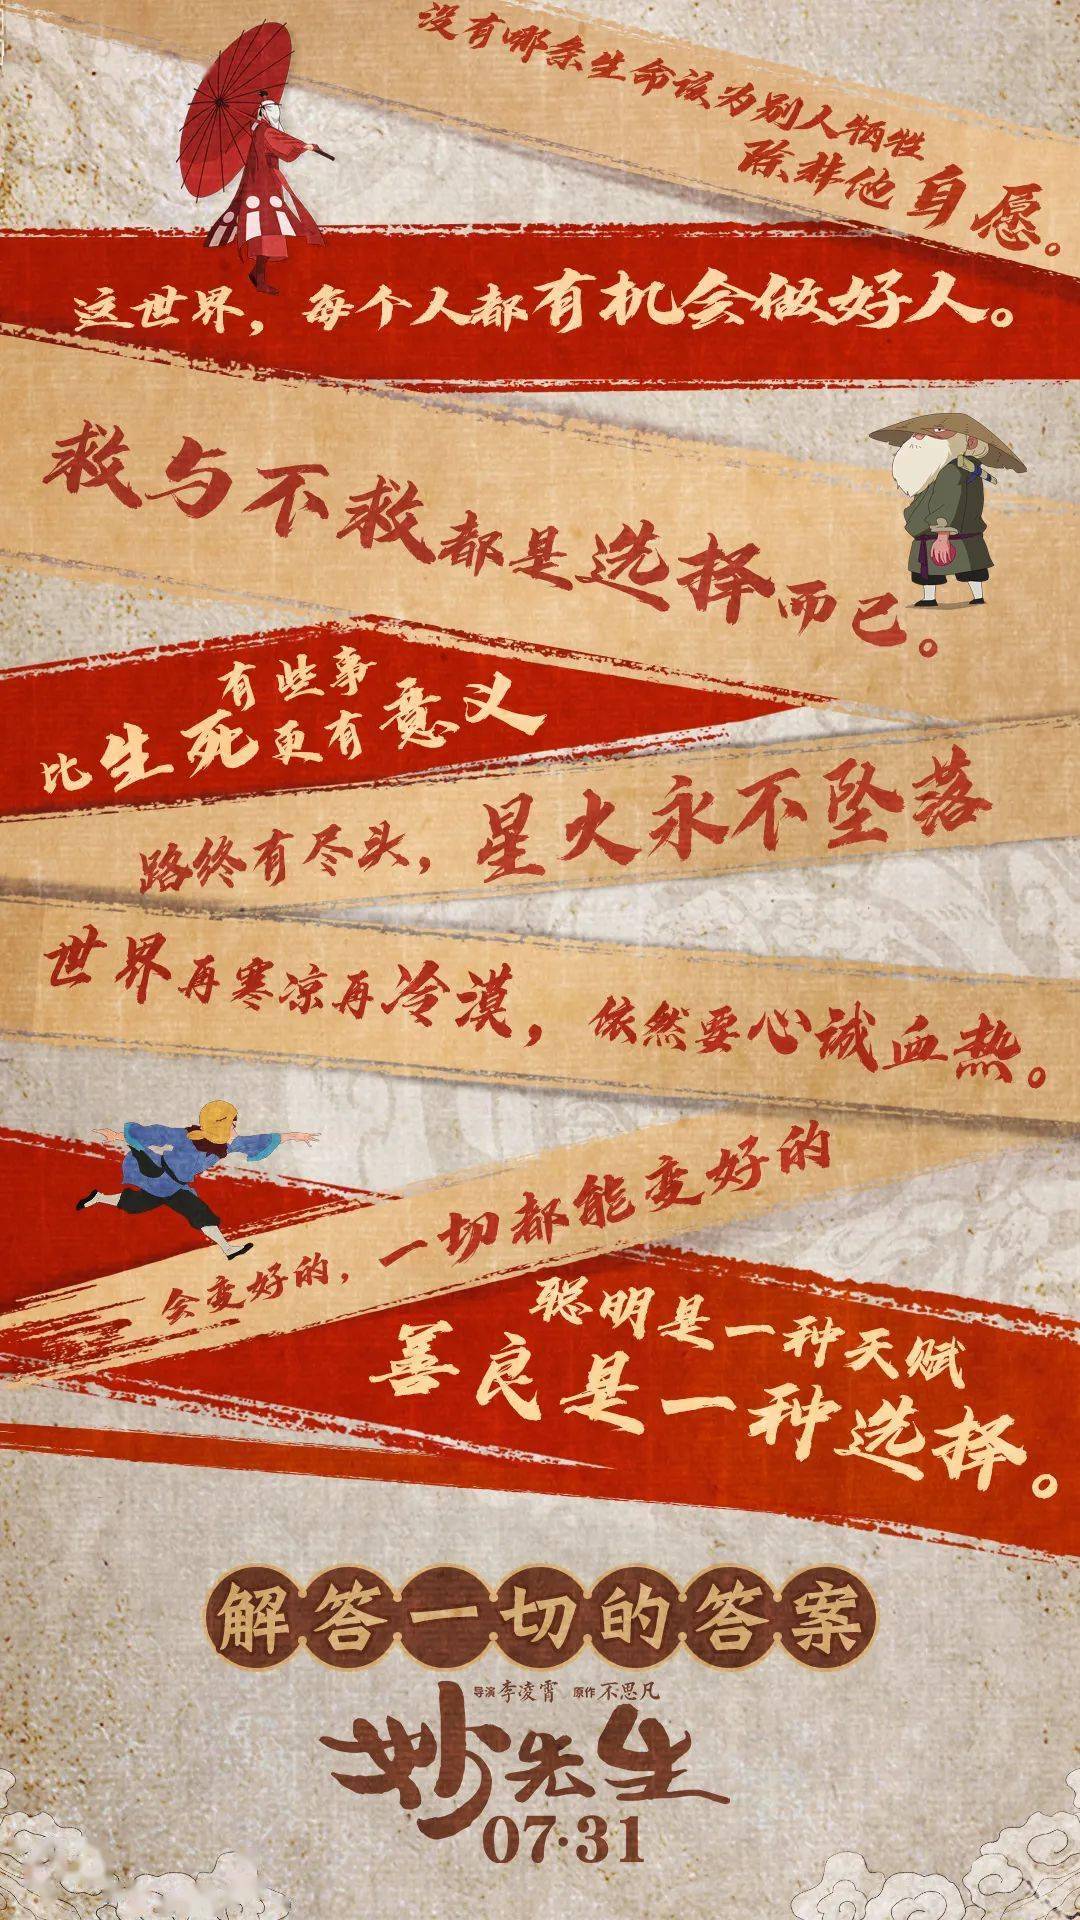 没有哪条生命该为别人牺牲
除非他自愿。
这世界，每个人都有机会做好人。
救与不救都是选择而已。
有些事
比生死更有意义
路终有尽头，星火永不坠落
世界再寒凉再冷漠，依然要心诚血热。
会变好的，一切都能变好的
聪明是一种天赋
善良是一种选择。
解答一切的答案
导演 李凌霄 原作 不思凡
妙先生
07·31